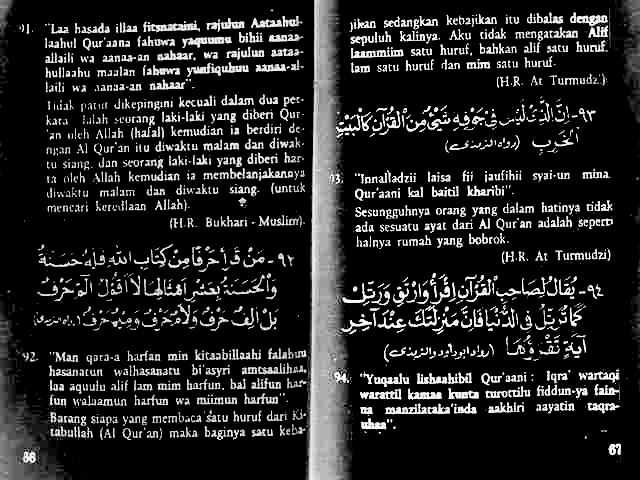 91. "Laa hasada illaa fitsnataini, rajulun Aataahul-
laahul Qur'aana fahuwa yaquumu bihii aanaa-
allaili wa aanaa-an nahaar, wa rajulun aataa-
hullaahu maalan fahuwa yunfiquhuu aanaa-al-
laili wa aanaa-an nahaar".
Tidak patut dikepingini kecuali dalam dua per-
kara. Ialah seorang laki-laki yang diberi Qur-
'an oleh Allah (hafal) kemudian ia berdiri de-
ngan Al Qur'an itu diwaktu malam dan diwak-
tu siang, dan seorang laki-laki yang diberi har-
ta oleh Allah kemudian ia membelanjakannya
diwaktu malam dan diwaktu siang. (untuk
mencari keredlaan Allah).
(H.R. Bukhari - Muslim).
٩٢- مَنْ قَرَأَ حَرْفًا مِنْ كِتَابِ اللهِ فَلَهُ حَسَنَةٌ
وَالْحَسَنَةُ بِعَشْرِ اَمْثَالِهَا لاَ اَقُوْلُ الٓمٓ حَرْفٌ
بَلْ اَلِفٌ حَرْفٌ وَلاَمٌ حَرْفٌ وَمِيْمٌ حَرْفٌ (رواه الترمذى)
92. "Man qara-a harfan min kitaabillaahi falahuu
hasanatun walhasanatu bi'asyri amtsaalihaa,
laa aquulu alif lam mim harfun, bal alifun har-
fun walaamun harfun wa miimun harfun".
Barang siapa yang membaca satu huruf dari Ki-
tabullah (Al Qur'an) maka baginya satu keba-
66
jikan sedangkan kebajikan itu dibalas dengan
sepuluh kalinya. Aku tidak mengatakan Alif
laammiim satu huruf, bahkan alif satu huruf,
lam satu huruf dan mim satu huruf.
(H.R. At Turmudzi)
٩٣- اِنَّ الَّذِيْ لَيْسَ فِيْ جَوْفِهِ شَيْءٌ مِنَ الْقُرْآنِ كَالْبَيْتِ
الْخَرِبِ (رواه الترمذى)
93. "Innalladzii laisa fii jaufihii syai-un mina
Qur'aani kal baitil kharibi".
Sesungguhnya orang yang dalam hatinya tidak
ada sesuatu ayat dari Al Qur'an adalah seperti
halnya rumah yang bobrok.
(H.R. At Turmudzi)
٩٤- يُقَالُ لِصَاحِبِ الْقُرْآنِ اِقْرَأْ وَارْتَقِ وَرَتِّلْ
كَمَا تُرَتِّلُ فِي الدُّنْيَا فَاِنَّ مَنْزِلَتَكَ عِنْدَ آخِرِ
آيَةٍ تَقْرَؤُهَا (رواه ابو داود والترمذى)
94. "Yuqaalu lishaahibil Qur'aani : Iqra' wartaqi
warattil kamaa kunta turottilu fiddun-ya fain-
na manzilataka'inda aakhiri aayatin taqra-
uhaa".
67